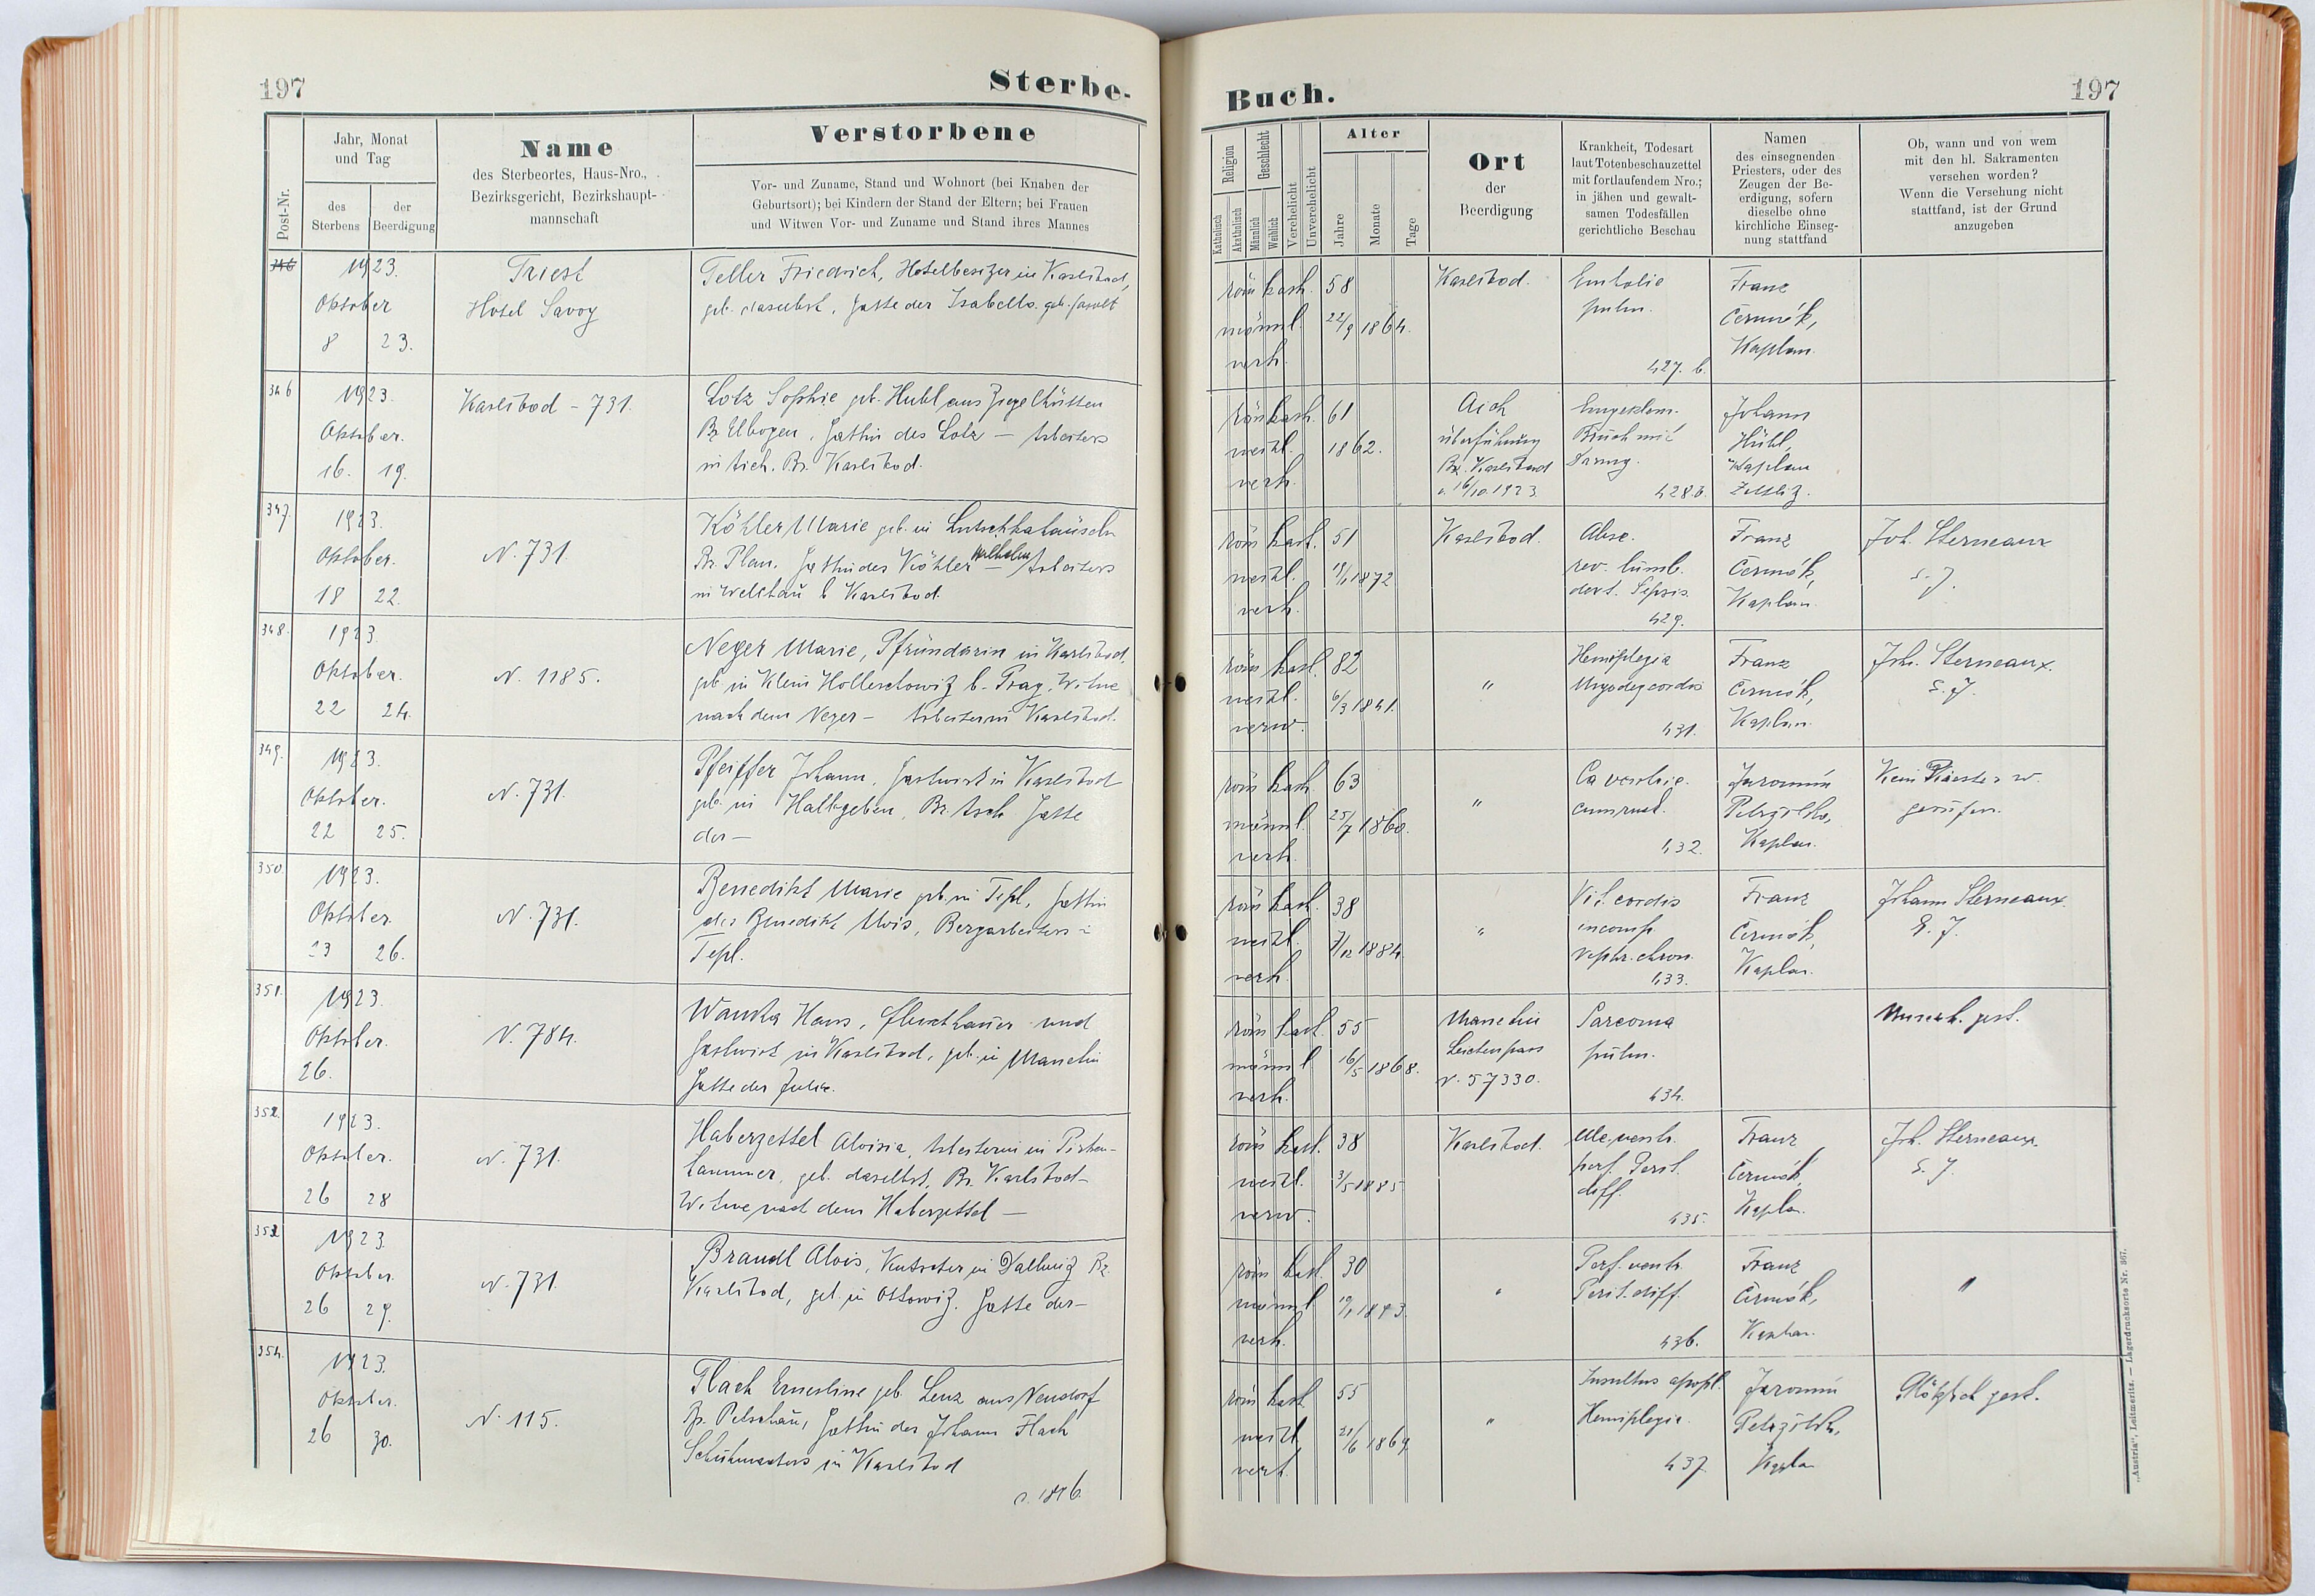 197
Sterbe-
Post-Nr.
Jahr, Monat
und Tag
des
Sterbens
der
Beerdigung
Name
des Sterbeortes, Haus-Nro.,
Bezirksgericht, Bezirkshaupt-
mannschaft
Verstorbene
Vor- und Zuname, Stand und Wohnort (bei Knaben der
Geburtsort); bei Kindern der Stand der Eltern; bei Frauen
und Witwen Vor- und Zuname und Stand ihres Mannes
346
1923.
Oktober
8 23.
Triest
Hotel Savoy
Teller Friedrich, Hotelbesitzer in Karlsbad,
geb. daselbst, Gatte der Isabella geb.
346
1923.
Oktober.
16. 19.
Karlsbad - 731.
Lotz Sophie geb. Hubl aus Ziegelhütten
Bz Elbogen, Gattin des Lotz — Arbeiters
in Aich. Bz. Karlsbad.
347.
1923.
Oktober.
18 22.
N. 731.
Köhler Marie geb. in
Bz. Plan. Gattin des Köhler Wilhelm Arbeiters
in Welchau b Karlsbad.
348.
1923.
Oktober.
22 24.
N. 1185.
Neger Marie, Pfründnerin in Karlsbad,
geb in Klein Holleschowitz b. Prag. Witwe
nach dem Neger — Arbeiter in Karlsbad.
349.
1923.
Oktober.
22 25.
N. 731.
Pfeiffer Johann, Gastwirt in Karlsbad
geb. in Halbgeben, Bz. Asch Gatte
der —
350.
1923.
Oktober.
23 26.
N. 731.
Benedikt Marie geb. in Tepl, Gattin
des Benedikt Alois, Bergarbeiters i
Tepl.
351.
1923.
Oktober.
26.
N. 784.
Wanka Hans, Fleischhauer und
Gastwirt in Karlsbad, geb. in Manetin
Gatte der Julie.
352.
1923.
Oktober.
26 28
N. 731.
Haberzettel Aloisia, Arbeiterin in Pirken-
hammer, geb. daselbst, Bz. Karlsbad —
Witwe nach dem Haberzettel —
353.
1923.
Oktober.
26 29.
N. 731.
Brandl Alois, Vertreter in Dallwitz Bz.
Karlsbad, geb. in Ottowitz. Gatte der —
354.
1923.
Oktober.
26 30.
N. 115.
Flach Ernestine geb. Lenz aus Neudorf
Bz. Petschau, Gattin des Johann Flach
Schuhmachers in Karlsbad
Buch.
197
Religion
Katholisch
Akatholisch
Geschlecht
Männlich
Weiblich
Verehelicht
Unverehelicht
Alter
Jahre
Monate
Tage
Ort
der
Beerdigung
Krankheit, Todesart
laut Totenbeschauzettel
mit fortlaufendem Nro.;
in jähen und gewalt-
samen Todesfällen
gerichtliche Beschau
Namen
des einsegnenden
Priesters, oder des
Zeugen der Be-
erdigung, sofern
dieselbe ohne
kirchliche Einseg-
nung stattfand
Ob, wann und von wem
mit den hl. Sakramenten
versehen worden?
Wenn die Versehung nicht
stattfand, ist der Grund
anzugeben
röm kath. 58
männl. 22/9 1864.
verh.
Karlsbad.
Embolie
pulm.
427. b.
Franz
Čermák,
Kaplan.
röm kath. 61
weibl. 1862.
verh.
Aich
überführung
Bz. Karlsbad
v. 16/10 1923
Eingeklem.
Bruch mit
428. b.
Johann
Hühl,
Kaplan
Zettlitz.
röm kath. 51
weibl. 19/1 1872
verh.
Karlsbad.
Absc.
reg. lumb.
dext. Sepsis.
429.
Franz
Čermák,
Kaplan.
Joh. Sterneaux
S. J.
röm kath. 82
weibl. 6/3 1841.
verw.
"
Hemiplegia
Myodeg cordis
431.
Franz
Čermák,
Kaplan.
Joh. Sterneaux.
S. J.
röm kath. 63
männl. 25/7 1860.
verh.
"
Ca ventric.
432.
Jaromir
Petrzilka,
Kaplan.
Kein Priester w.
gerufen.
röm kath. 38
weibl. 7/12 1884.
verh.
"
Vit. cordis
incomp.
Nephr. chron.
433.
Franz
Čermák,
Kaplan.
Johann Sterneaux.
S. J.
röm kath. 55
männl 16/5 1868.
verh.
Manetin
Leichenpass
N. 57330.
Sarcoma
pulm.
434.
Unverh. gest.
röm kath. 38
weibl. 3/5 1885
verw.
Karlsbad.
Ulc. ventr.
perf. Perit.
diff.
435.
Franz
Čermák,
Kaplan.
Joh. Sterneaux.
S. J.
röm kath. 30
männl 19/1 1893.
verh.
"
Perf. ventr.
Perit. diff.
436.
Franz
Čermák,
Kaplan.
"
röm kath. 55
weibl. 21/6 1869
verh.
"
Insultus apopl.
Hemiplegie.
437
Jaromir
Petrzilka,
Kaplan
Plötzlich gest.
„Austria“, Leitmeritz. — Lagerdrucksorte Nr. 367.